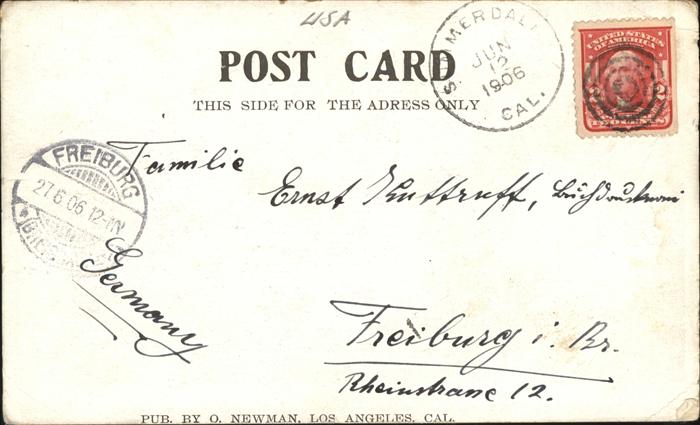 USA
POST CARD
THIS SIDE FOR THE ADRESS ONLY
SUMMERDALE
JUN
12
1906
CAL.
UNITED STATES
OF AMERICA
2
TWO CENTS
FREIBURG
27.6.06.12-1N
Familie
Ernst Kuttruff, Buchdruckerei
Germany
Freiburg i. Br.
Rheinstrasse 12.
PUB. BY O. NEWMAN, LOS ANGELES, CAL.